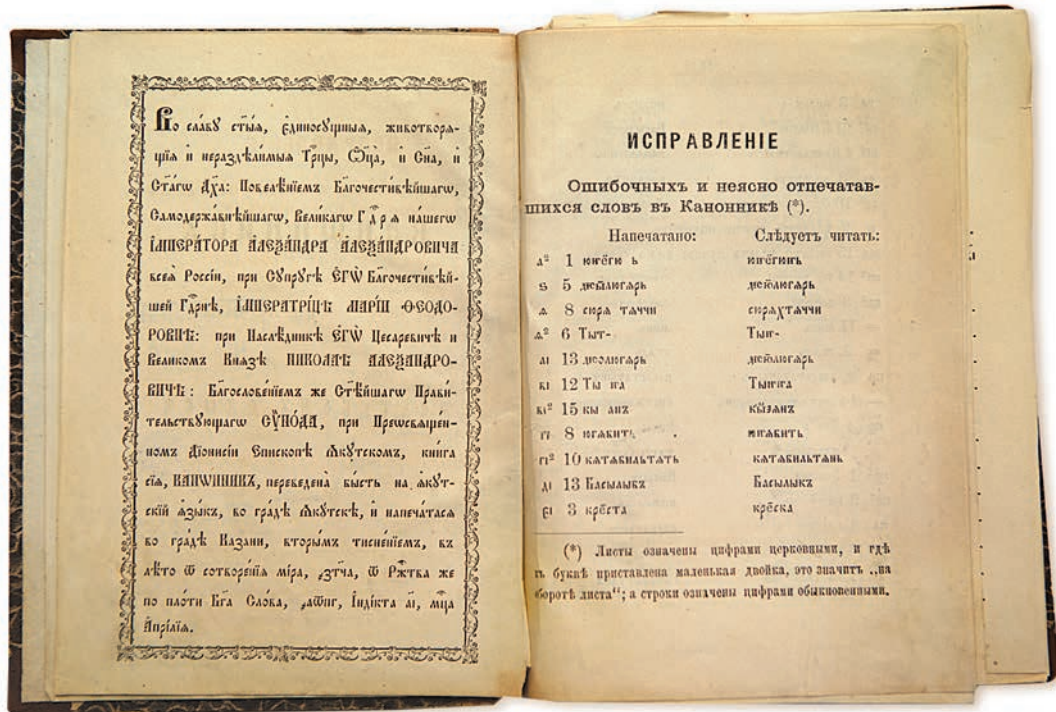 Во славꙋ ст҃ыѧ, є҆диносꙋ́щныѧ, животворѧ-
щїѧ и҆ нераздѣли́мыѧ Трⷪ҇цы, Ѻ҆ц҃а̀, и҆ Сн҃а, и҆
Ст҃а́гѡ Дх҃а: Повелѣ́нїемъ Бл҃гочести́вѣйшагѡ,
Самодержа́внѣйшагѡ, Вели́кагѡ Гдⷭ҇рѧ на́шегѡ
І҆МПЕРА́ТОРА А҆ЛЕѮА́НДРА А҆ЛЕѮА́НДРОВИЧА
всеѧ̀ Рѡссі́и, при Сꙋпрꙋ́гѣ Є҆ГѠ̀ Бл҃гочести́вѣй-
шей Гдⷭ҇рнѣ, І҆МПЕРАТРИ́ЦѢ МАРІ́И ѲЕОДО-
РОВНѢ: при Наслѣ́дникѣ Є҆ГѠ̀ Цесаревичѣ и҆
Великомъ Кнѧзѣ НИКОЛАѢ АЛЕѮАНДРО-
ВИЧѢ: Бл҃гословенїемъ же Ст҃ѣйшагѡ Прави-
тельствꙋющагѡ СѴНО́ДА, при Преѡсвѧще́н-
номъ Дїѻнисіи Епископѣ Ꙗкꙋтскомъ, книга
сїѧ, КАНѠ́ННИКЪ, переведена̀ бысть на ꙗкꙋт-
скїй ѧ҆зы́къ, во гра́дѣ Ꙗкꙋтскѣ, и҆ напечатасѧ
во гра́дѣ Казани, вторы́мъ тисне́нїемъ, въ
лѣ́то ѿ сотворе́нїѧ мі́ра, ҂зт҃ча, ѿ Рж҃тва̀ же
по пло́ти Бг҃а Сло́ва, ҂аѡ҃пг, І҆нди́кта а҃і, мц҃а
А҆прі́лїѧ.
ИСПРАВЛЕНІЕ
Ошибочныхъ и неясно отпечатав-
шихся словъ въ Канонникѣ (*).
Напечатано: Слѣдуетъ читать:
д² 1 юнгёгю ь юнгёгюнь
ѕ 5 мѣлюгярь
ѧ 8 сюрѧ тѧччи сюрѧхтѧччи
ѧ² 6 Тыт- Тынг-
аі 13
ві 12 Ты нга Тынгнга
ві² 15 кы анъ кы̆ꙁанъ
гі 8 юнгѧбить юнгѧбить
гі² 10 кѧтѧбильтѧть кѧтѧбильтѧнь
ді 13 Басылыбъ Басылыкъ
еі 3 крёста крёска
(*) Листы означены цифрами церковными, и гдѣ
къ буквѣ приставлена маленькая двойка, это значитъ „на
оборотѣ листа“; а строки означены цифрами обыкновенными.